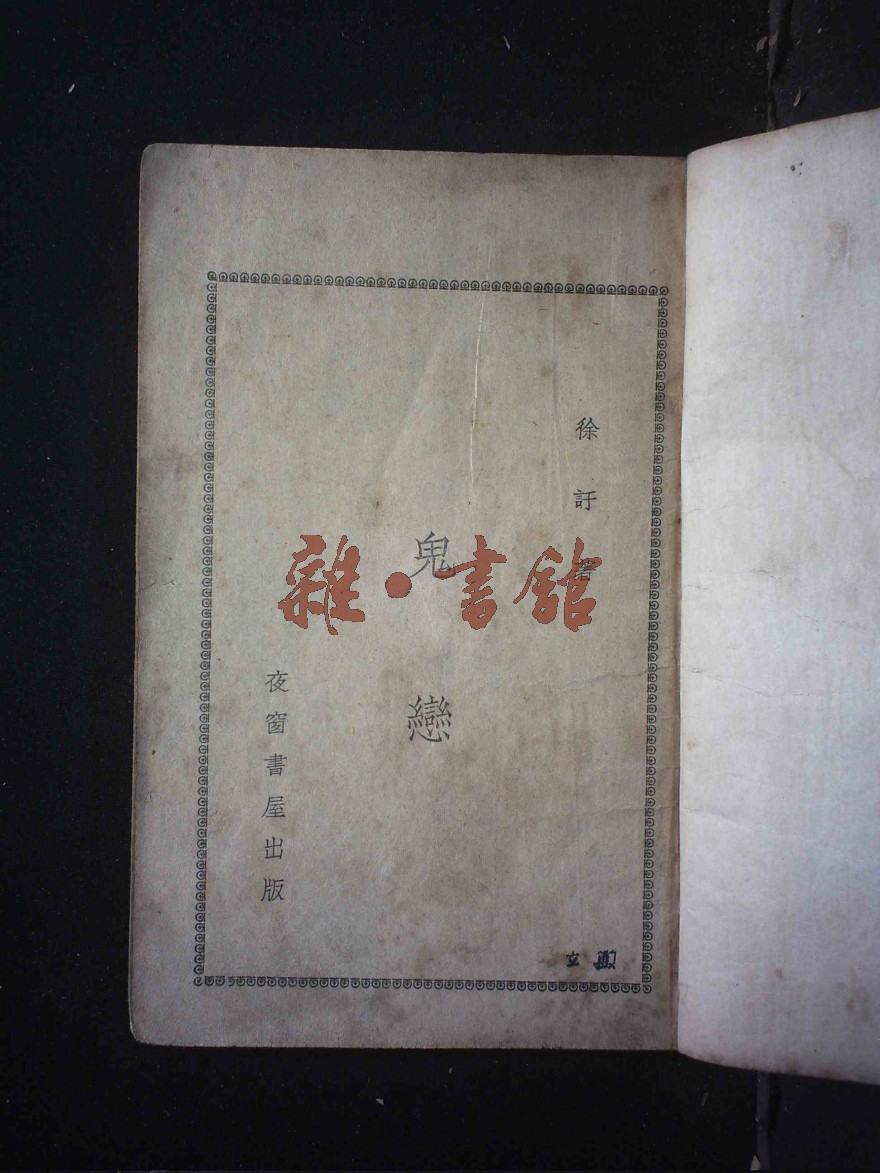 徐訏著
鬼戀
夜窗書屋出版
雜·書舘